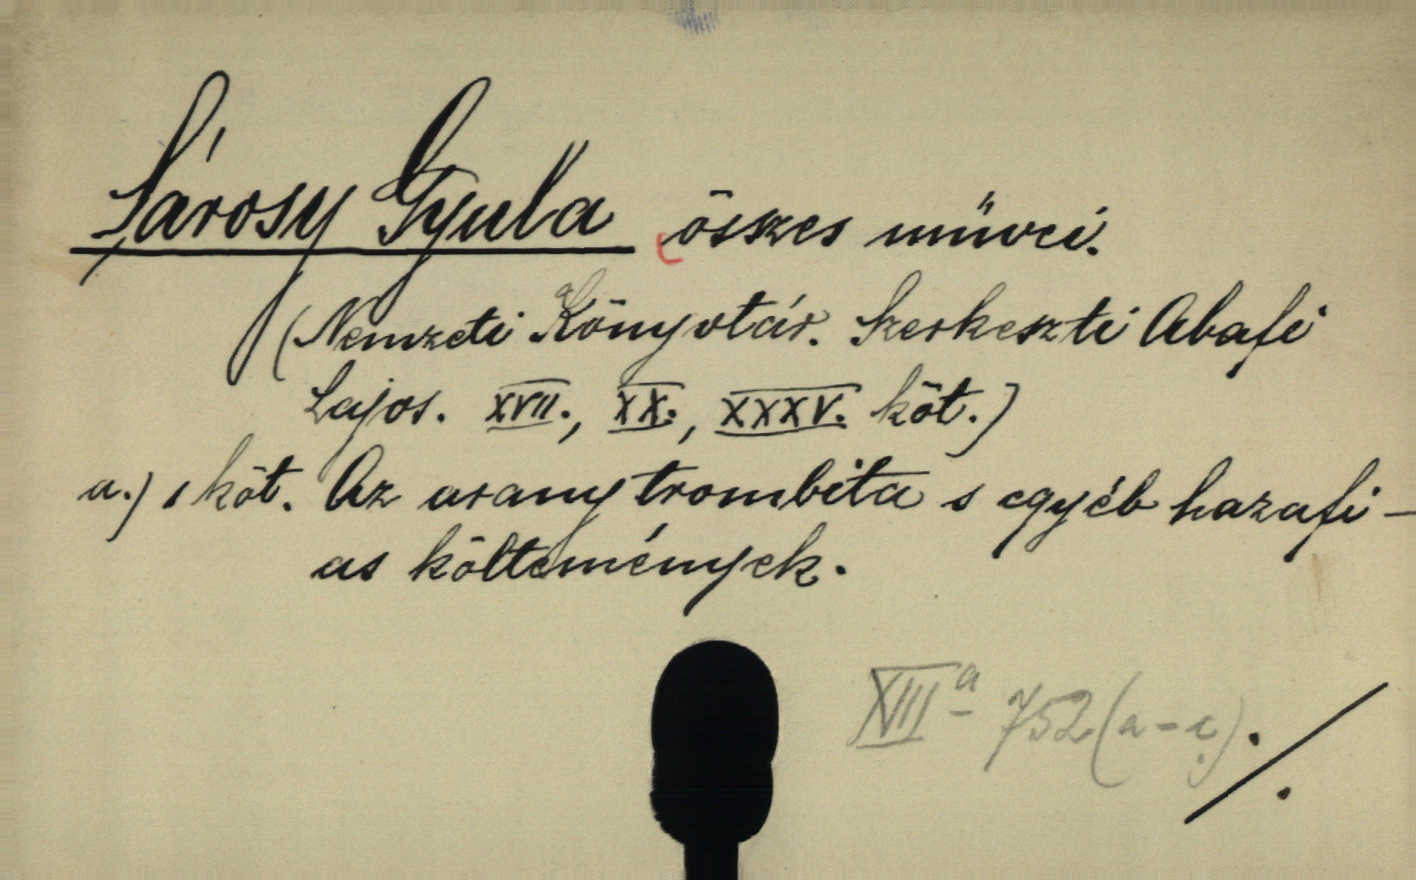 Sárosy Gyula összes művei.
(Nemzeti Könyvtár. Szerkeszti Abafi
Lajos. XVII., XX., XXXV. köt.)
a.) 1 köt. Az arany trombita s egyéb hazafi-
as költemények.
XIII a 752 (a-c). ./.